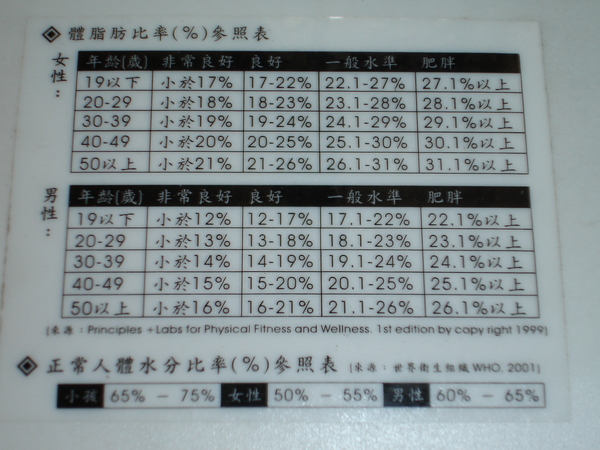 體脂肪比率(%)參照表
女性:
年齡(歲) 非常良好 良好 一般水準 肥胖
19以下 小於17% 17-22% 22.1-27% 27.1%以上
20-29 小於18% 18-23% 23.1-28% 28.1%以上
30-39 小於19% 19-24% 24.1-29% 29.1%以上
40-49 小於20% 20-25% 25.1-30% 30.1%以上
50以上 小於21% 21-26% 26.1-31% 31.1%以上
男性:
年齡(歲) 非常良好 良好 一般水準 肥胖
19以下 小於12% 12-17% 17.1-22% 22.1%以上
20-29 小於13% 13-18% 18.1-23% 23.1%以上
30-39 小於14% 14-19% 19.1-24% 24.1%以上
40-49 小於15% 15-20% 20.1-25% 25.1%以上
50以上 小於16% 16-21% 21.1-26% 26.1%以上
(來源:Principles +Labs for Physical Fitness and Wellness. 1st edition by copy right 1999)
正常人體水分比率(%)參照表 (來源:世界衛生組織WHO, 2001)
小孩 65% - 75% 女性 50% - 55% 男性 60% - 65%